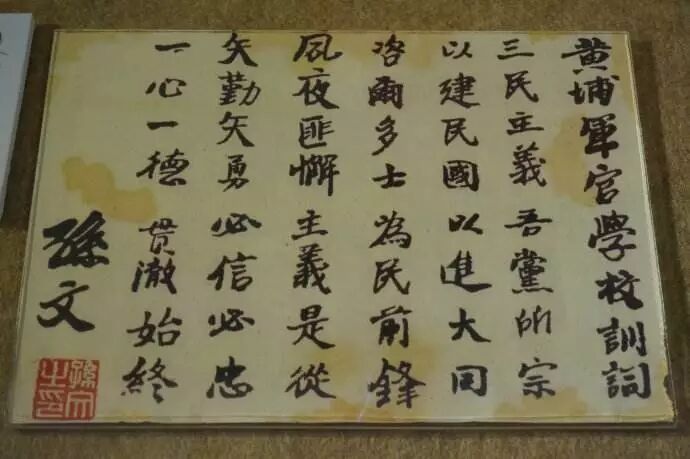 黃埔軍官學校訓詞
三民主義 吾黨所宗
以建民國 以進大同
咨爾多士 為民前鋒
夙夜匪懈 主義是從
矢勤矢勇 必信必忠
一心一德 貫澈始終
孫文
孫文之印